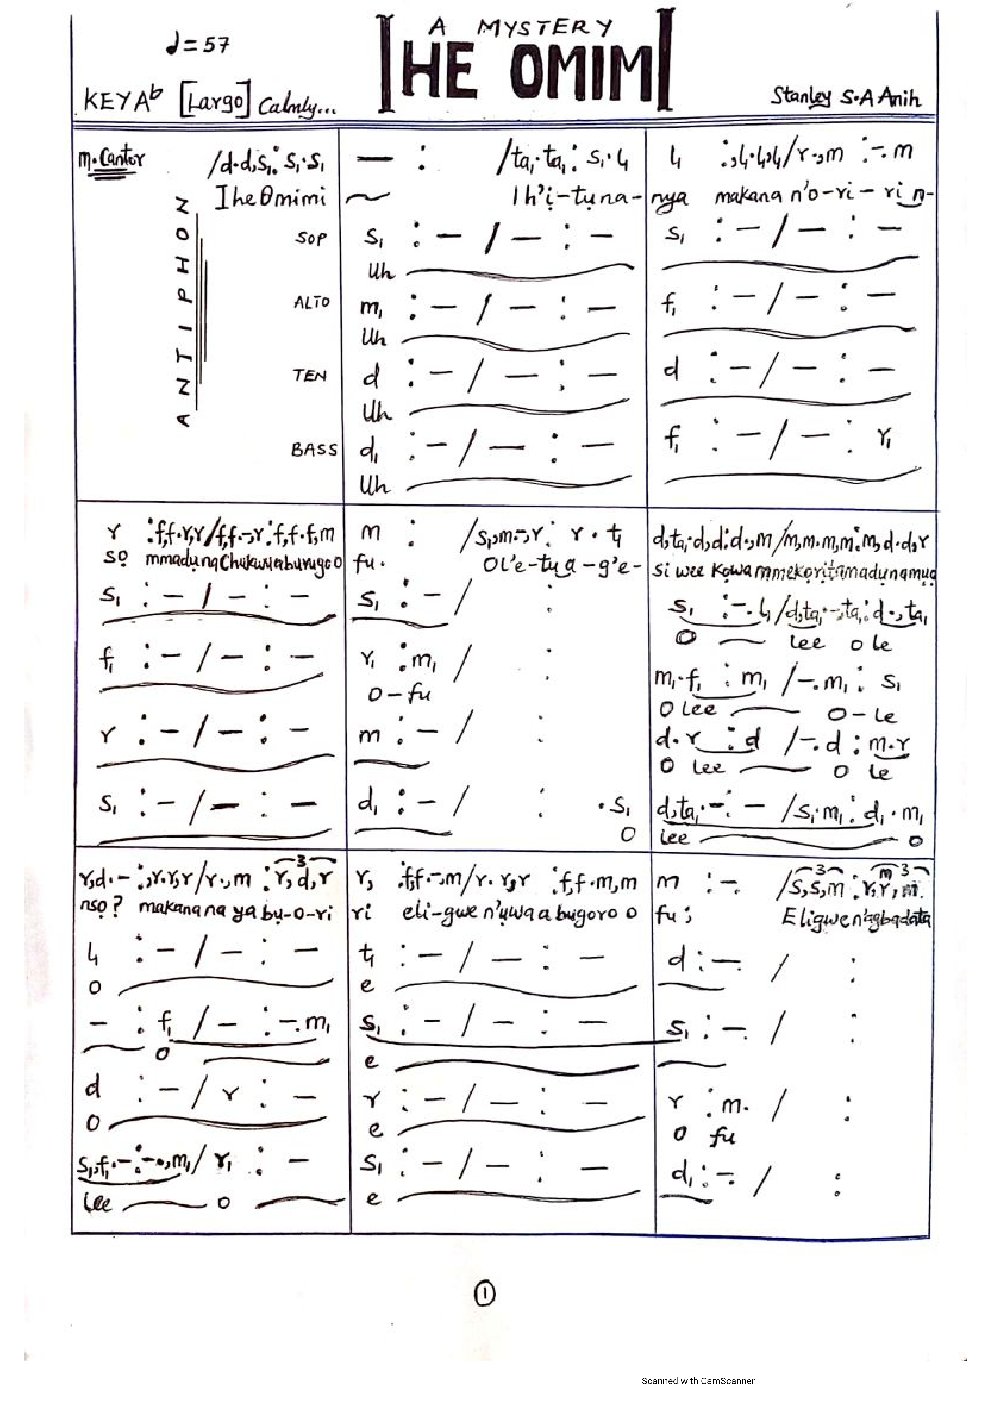 A MYSTERY
♩=57
IHE OMIMI
KEY A♭ [Largo] Calmly...
Stanley S.A Anih
m. Cantor
/d.d,s₁: s₁.s₁
Ihe Omimi
ANTIPHON
SOP
ALTO
TEN
BASS
— : /ta₁.ta₁: s₁.l₁
~ Ih'ị-tụna-
s₁ : – / – : –
Uh
m₁ : – / – : –
Uh
d : – / – : –
Uh
d₁ : – / – : –
Uh
l₁ :,l₁.l₁,l₁/r.,m :-.m
nya makana n'o-ri-ri n-
s₁ : – / – : –
f₁ : – / – : –
d : – / – : –
f₁ : – / – : r₁
r :f,f.r,r/f,f.-,r:f,f.f,m
sọ mmadụ na Chukwu aburugo o
s₁ : – / – : –
f₁ : – / – : –
r : – / – : –
s₁ : – / – : –
m : /s₁,m.-,r: r . t₁
fu. Ol'e-tu a-g'e-
s₁ : – / :
r₁ : m₁ / :
o-fu
m : – / :
d₁ : – / : .s₁
O
d,ta₁.d,d:d.,m/m,m.m,m:m,d.d,r
si wee kowa mmekorita madụ na mụọ
s₁ :-.l₁/d,ta₁.-,ta₁:d.,ta₁
O lee o le
m₁.f₁ : m₁ /-.m₁ : s₁
O lee O-le
d.r : d /-.d : m.r
O lee O le
d,ta₁.-:- /s₁.m₁:d₁.m₁
lee o
r,d.-:,r.r,r/r.,m :r,d,r
nsọ? makana na ya bụ-o-ri
l₁ : – / – : –
O
– : f₁ / – : -.m₁
O
d : – / r : –
O
s₁,f₁.-:-.,m₁/ r₁ : –
lee o
r, :f,f.-,m/r.r,r :f,f.m,m
ri eli-gwe n'ụwa abugoro o
t₁ : – / – : –
e
s₁ : – / – : –
e
r : – / – : –
e
s₁ : – / – : –
e
m :-. /s,s,m :r,r,m
fu; Eligwe n'agbadata
d :-. / :
s₁ :-. / :
r : m. / :
O fu
d₁ :-. / :
1
Scanned with CamScanner